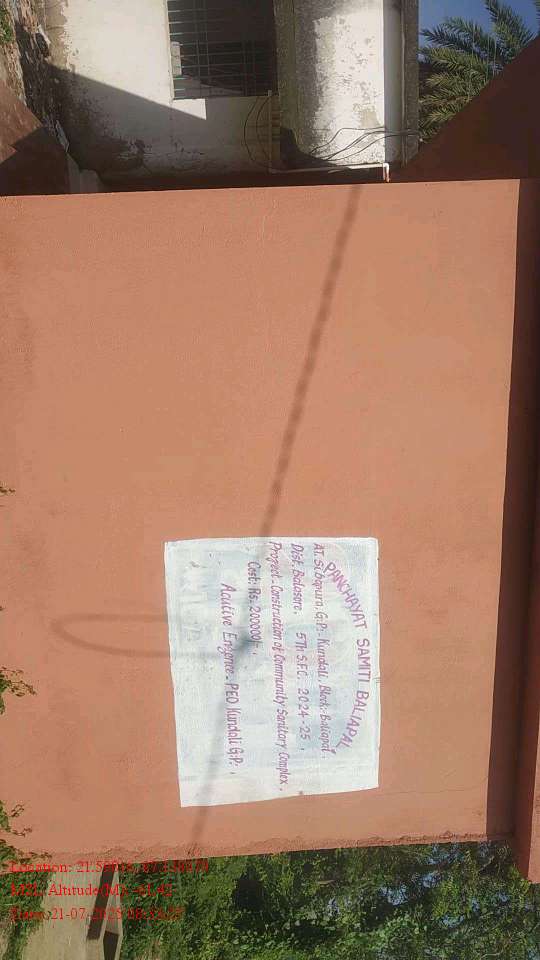 PANCHAYAT SAMITI BALIAPAL
AT. Sibapura, G.P:- Kundali, Block:-Baliapal,
Dist. Balasore, 5Th S.F.C. 2024-25,
Project-Construction of Community Sanitary Complex,
Cost: Rs. 200000/-,
Acutive Eregnce-PEO, Kundali G.P.,
Location:
MSL Altitude(M): -61.42
Date: 21-07-2025